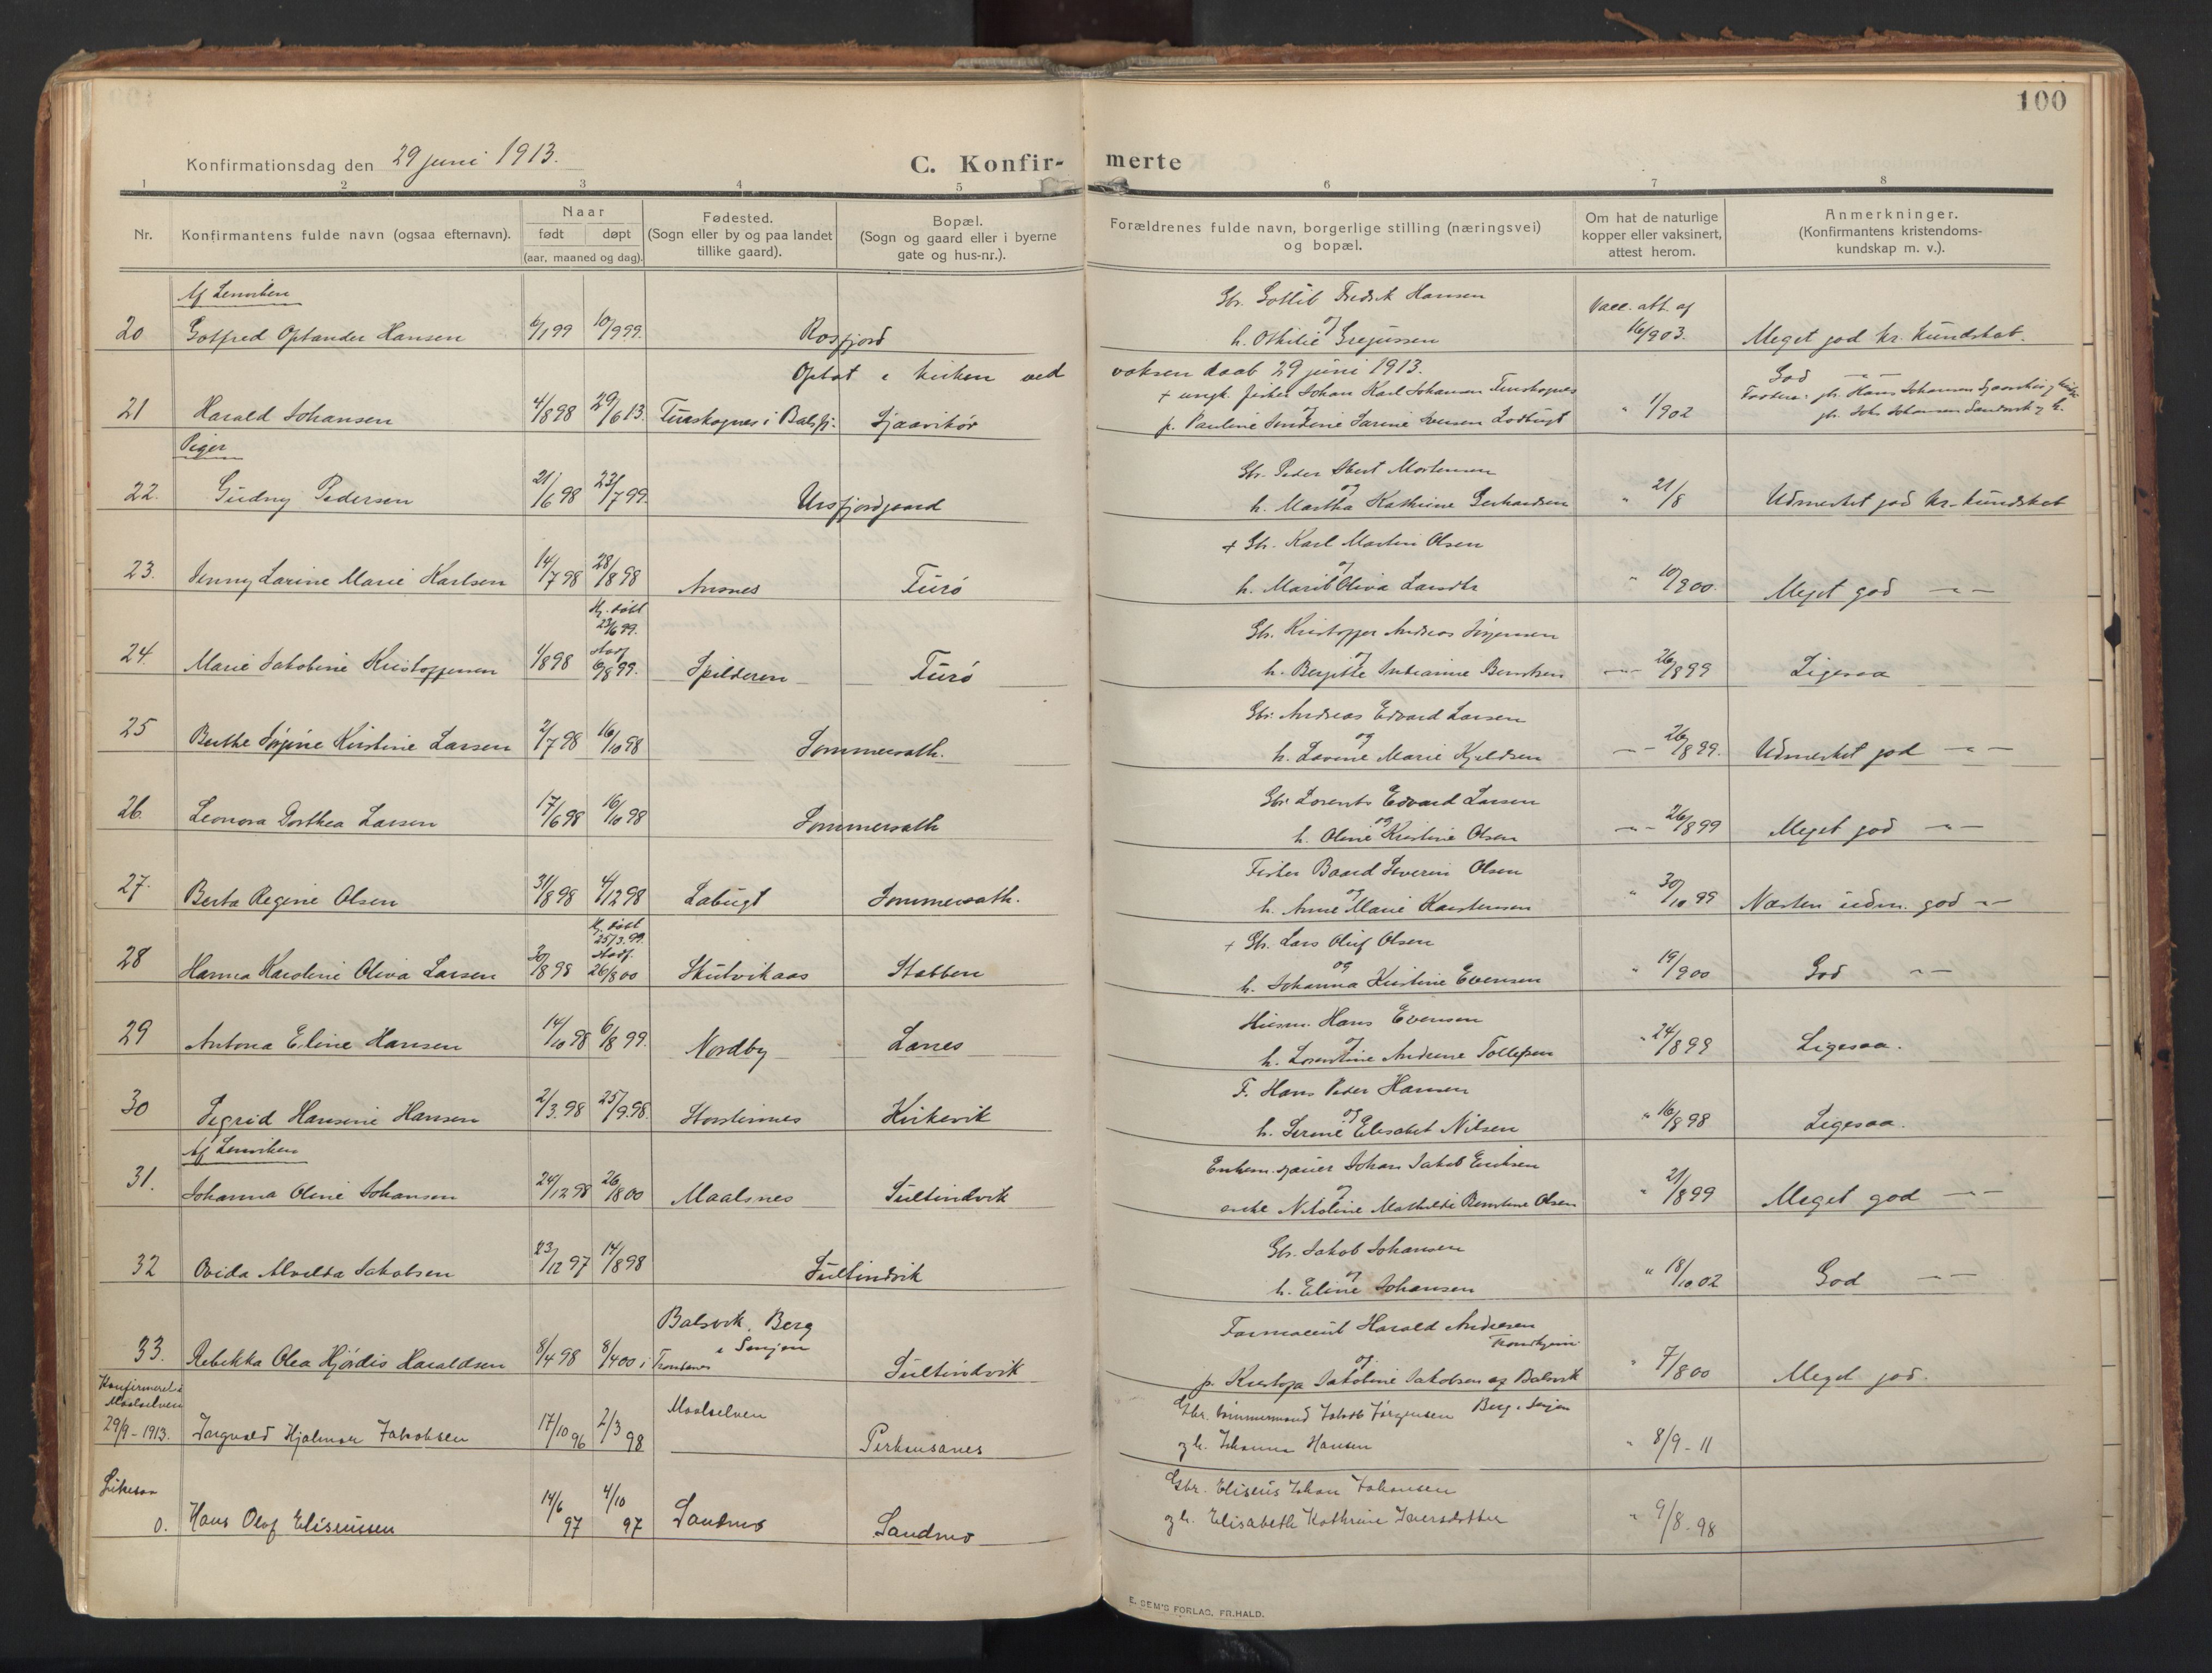 100
Konfirmationsdag den 29 juni 1913.
C. Konfir- merte
1 2 3 4 5 6 7 8
Nr.
Konfirmantens fulde navn (ogsaa efternavn).
Naar
født døpt
(aar, maaned og dag).
Fødested.
(Sogn eller by og paa landet
tillike gaard).
Bopæl.
(Sogn og gaard eller i byerne
gate og hus-nr.).
Forældrenes fulde navn, borgerlige stilling (næringsvei)
og bopæl.
Om hat de naturlige
kopper eller vaksinert,
attest herom.
Anmerkninger.
(Konfirmantens kristendoms-
kundskap m. v.).
Gbr. Gottlib Fredrik Hansen
Vacc. att. af
20 Gotfred Optander Hansen 6/1 99 10/9 99. Rosfjord og h. Othilie Grejussen 16/9 03. Meget god kr. kundskab.
Optat i kirken ved voksen daab 29 juni 1913.
+ ungk. fisker Johan Karl Johansen
God — —
21 Harald Johansen 4/8 98 29/6 13. i Balsfj. p. Pauline 1/9 02
Piger
Gbr. Peder Mortensen
22. Gudny Pedersen 21/6 98 23/7 99. Ursfjordgaard og h. Martha Kathrine Gerhardsen " 21/8 Udmerket god kr. kundskab
+ Gbr. Karl Martin Olsen
23. Jenny Larine Marie Karlsen 14/7 98 28/8 98 Ansnes Turø og h. Marit Oliva Larsdtr " 10/9 00. Meget god — —
Hj. døbt
23/6 99.
Gbr. Kristoffer Andreas Jørgensen
24. Marie Jakobine Kristoffersen 1/8 98 stadf 6/8 99. Spilderen Turø og h. Bergitte Berntsen — " — 26/8 99 Ligesaa
Gbr. Andreas Edvard Larsen
25 Berthe Jørgine Kirstine Larsen 2/7 98 16/10 98 Sommersæth. og h. Lovine Marie Kjeldsen — " — 26/8 99. Udmerket god — " —
Gbr. Lorents Edvard Larsen
26. Leonora Dorthea Larsen 17/6 98 16/10 98 Sommersæth og h. Oline Kristine Olsen — " — 26/8 99 Meget god — " —
Fisker Baard Severin Olsen
27. Berta Regine Olsen 31/8 98 4/12 98 Labugt Sommersæth. og h. Anne Marie Karstensen " 30/10 99 Næsten udm. god — " —
Hj. døbt
25/3 99.
+ Gbr. Lars Oluf Olsen
28 Hanna Karoline Oliva Larsen 30/8 98 stadf. 26/8 00 Skutvikaas Stabben og h. Johanna Kirstine Evensen " 19/9 00 God — " —
Husm. Hans Evensen
29 Antona Eline Hansen 14/10 98 6/8 99. Nordby Lanes og h. Lorentine Andrine Tollefsen " 24/8 99 Ligesaa.
F. Hans Peder Hansen
30 Sigrid Hansine Hansen 2/3 98 25/9 98. Storsteinnes Kirkevik og h. Serine Elisabet Nilsen " 16/8 98 Ligesaa.
Johan Jakob Eriksen
31. Johanna Oline Johansen 24/12 98 26/8 00 Maalsnes Sultindvik og enke Mathilde Berntine Olsen " 21/8 99 Meget god — " —
Gbr. Jakob Johansen
32 Ovida Alvilda Jakobsen 23/12 97 14/8 98 Sultindvik og h. Eline Johansen " 18/10 02 God — " —
Balsvik. Berg
i Senjen
Farmaceut Harald Andresen
Trondhjem
33. Rebekka Olea Hjørdis Haraldsen 8/4 98 8/4 00 i Tromsøes Sultindvik og p. Jakobine Jakobsen Balsvik " 7/8 00 Meget god.
Berg i Senjen
Konfirmeret i
Maalselven
29/9 - 1913. Hjalmar Jakobsen 17/10 96 2/3 98 Maalselven Gbr. tømmermand Jakob Jørgensen
og h. Johanna Hansen " 8/9 - 11
Gbr. Eliseus Johan Johansen
Likesaa
0. Hans Olaf Eliseussen 14/6 97 4/10 97 Sandmo Sandmo og h. Elisabeth Kathrine Iversdatter " 9/8 - 98
E. SEM'S FORLAG, FR.HALD.